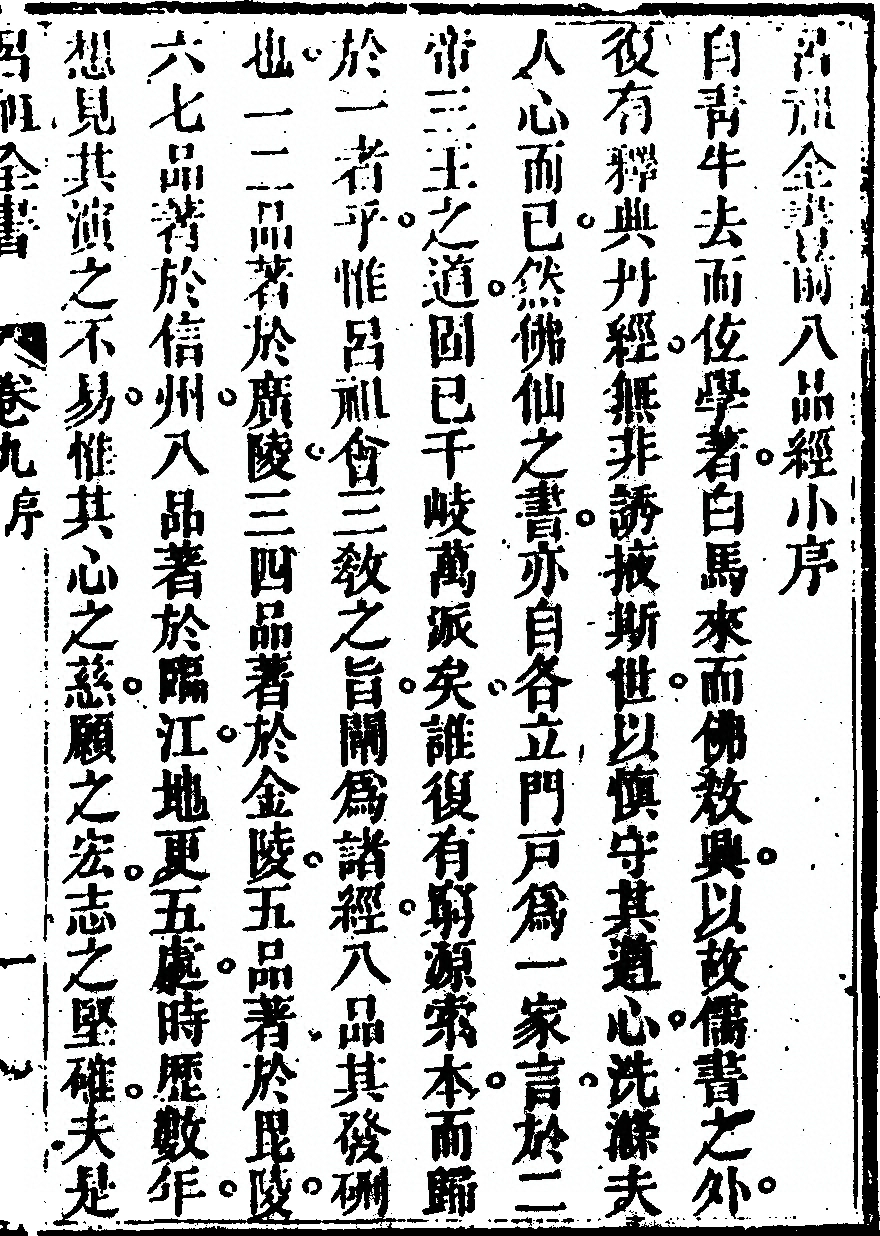 呂祖全書前八品經小序
自青牛去而仙學著。白馬來而佛教興。以故儒書之外。
復有釋典丹經。無非誘掖斯世。以慎守其道心。洗滌夫
人心而已。然佛仙之書。亦自各立門戶。爲一家言。於二
帝三王之道。固已千岐萬派矣。誰復有窮源索本。而歸
於一者乎。惟呂祖會三教之旨。闡爲諸經。八品其發硎
也。一二品著於廣陵。三四品著於金陵。五品著於毘陵。
六七品著於信州。八品著於臨江。地更五處。時歷數年。
想見其演之不易。惟其心之慈。願之宏。志之堅確。夫是
呂祖全書 卷九 序 一